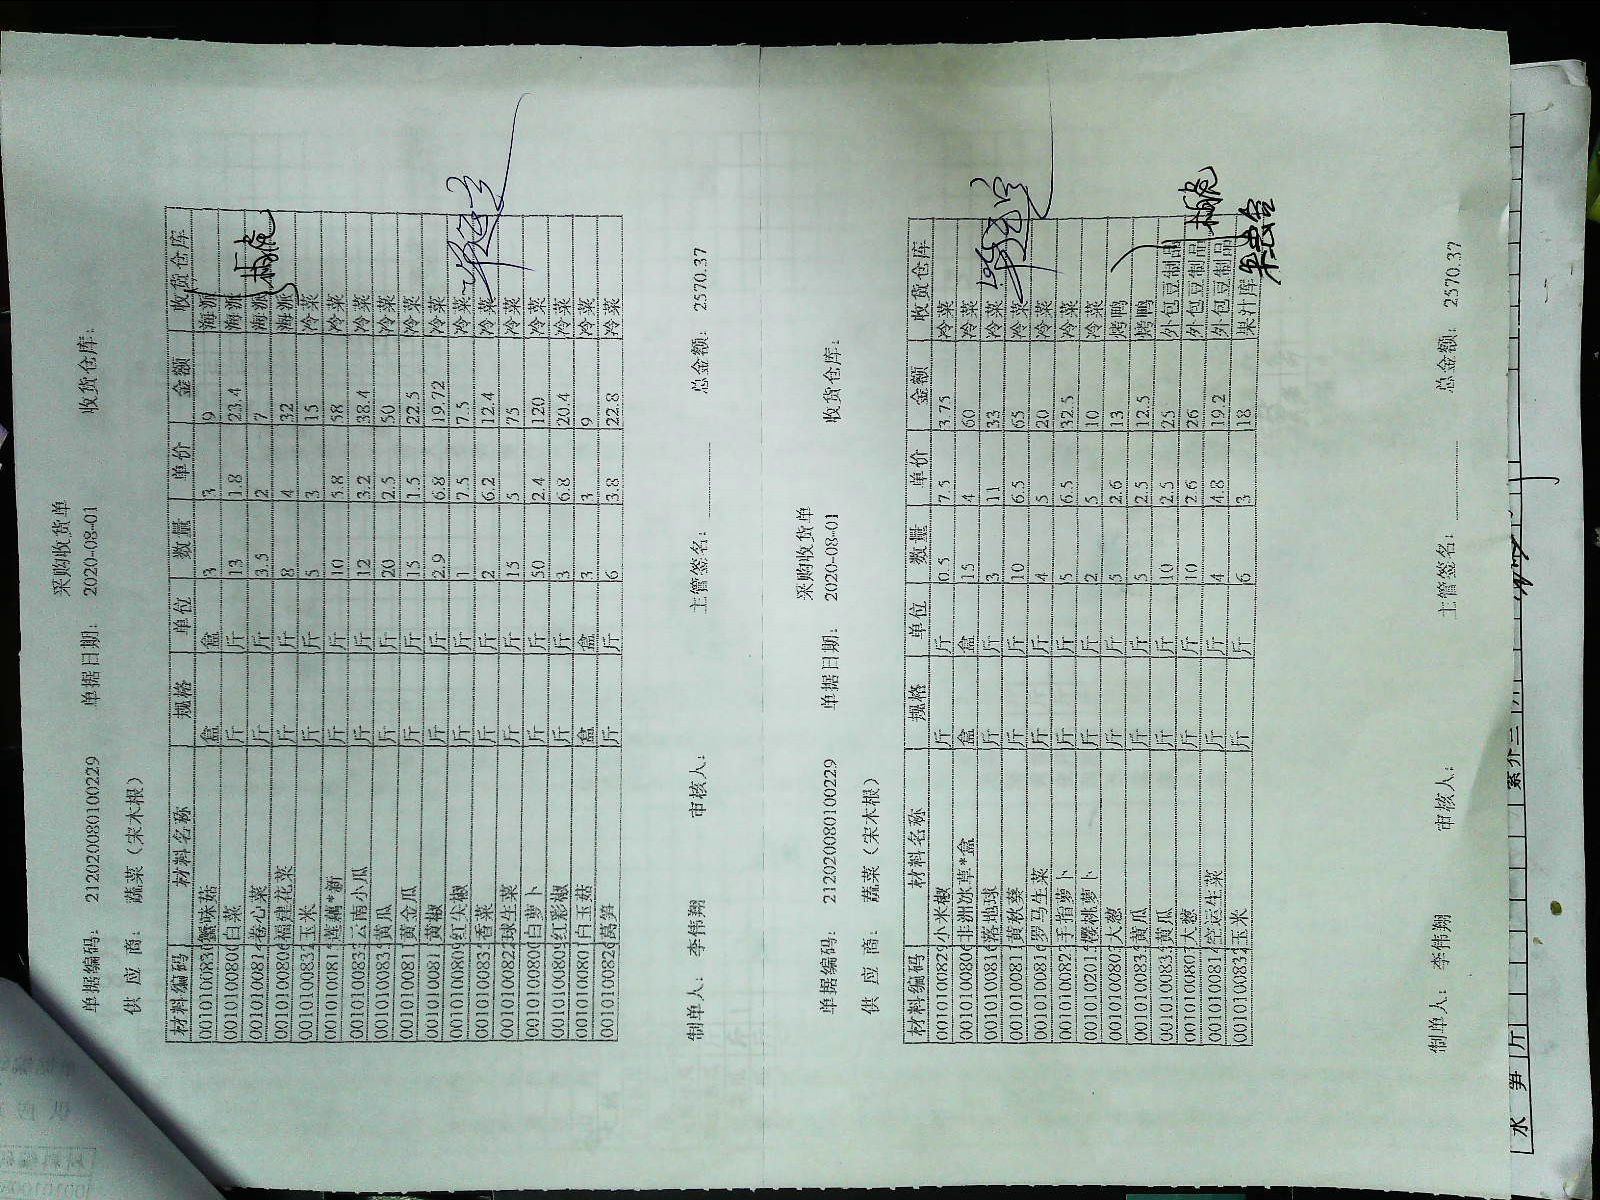 采购收货单
单据编码： 21202008010​0229 单据日期： 2020-08-01 收货仓库：
供 应 商： 蔬菜（宋木根）
材料编码 材料名称 规格 单位 数量 单价 金额 收货仓库
001010083 蟹味菇 盒 盒 3 3 9 海派
001010080 白菜 斤 斤 13 1.8 23.4 海派
001010081 卷心菜 斤 斤 3.5 2 7 海派
001010080 福建花菜 斤 斤 8 4 32 海派
001010083 玉米 斤 斤 5 3 15 冷菜
001010081 莲藕*新 斤 斤 10 5.8 58 冷菜
001010083 云南小瓜 斤 斤 12 3.2 38.4 冷菜
001010083 黄瓜 斤 斤 20 2.5 50 冷菜
001010081 黄金瓜 斤 斤 15 1.5 22.5 冷菜
001010081 黄椒 斤 斤 2.9 6.8 19.72 冷菜
001010080 红尖椒 斤 斤 1 7.5 7.5 冷菜
001010083 香菜 斤 斤 2 6.2 12.4 冷菜
001010082 球生菜 斤 斤 15 5 75 冷菜
001010080 白萝卜 斤 斤 50 2.4 120 冷菜
001010080 红彩椒 斤 斤 3 6.8 20.4 冷菜
001010080 白玉菇 盒 盒 3 3 9 冷菜
001010082 莴笋 斤 斤 6 3.8 22.8 冷菜
制单人： 李伟翔 审核人： 主管签名： 总金额： 2570.37
采购收货单
单据编码： 212020080100229 单据日期： 2020-08-01 收货仓库：
供 应 商： 蔬菜（宋木根）
材料编码 材料名称 规格 单位 数量 单价 金额 收货仓库
001010082 小米椒 斤 斤 0.5 7.5 3.75 冷菜
001010080 非洲冰草*盒 盒 盒 15 4 60 冷菜
001010081 落地球 斤 斤 3 11 33 冷菜
001010081 黄秋葵 斤 斤 10 6.5 65 冷菜
001010081 罗马生菜 斤 斤 4 5 20 冷菜
001010082 手指萝卜 斤 斤 5 6.5 32.5 冷菜
001010201 樱桃萝卜 斤 斤 2 5 10 冷菜
001010080 大葱 斤 斤 5 2.6 13 烤鸭
001010083 黄瓜 斤 斤 5 2.5 12.5 烤鸭
001010083 黄瓜 斤 斤 10 2.5 25 外包豆制品
001010080 大葱 斤 斤 10 2.6 26 外包豆制品
001010081 空运生菜 斤 斤 4 4.8 19.2 外包豆制品
001010083 玉米 斤 斤 6 3 18 果汁库
制单人： 李伟翔 审核人： 主管签名： 总金额： 2570.37
水 笋 斤